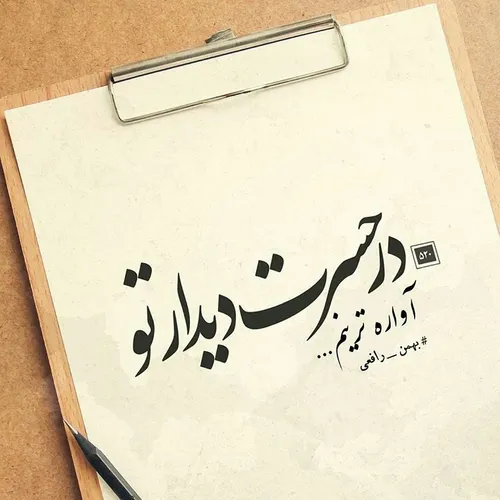 در حسرت دیدار تو
۵۲۰
آواره ترینم...
#بهمن_رافعی